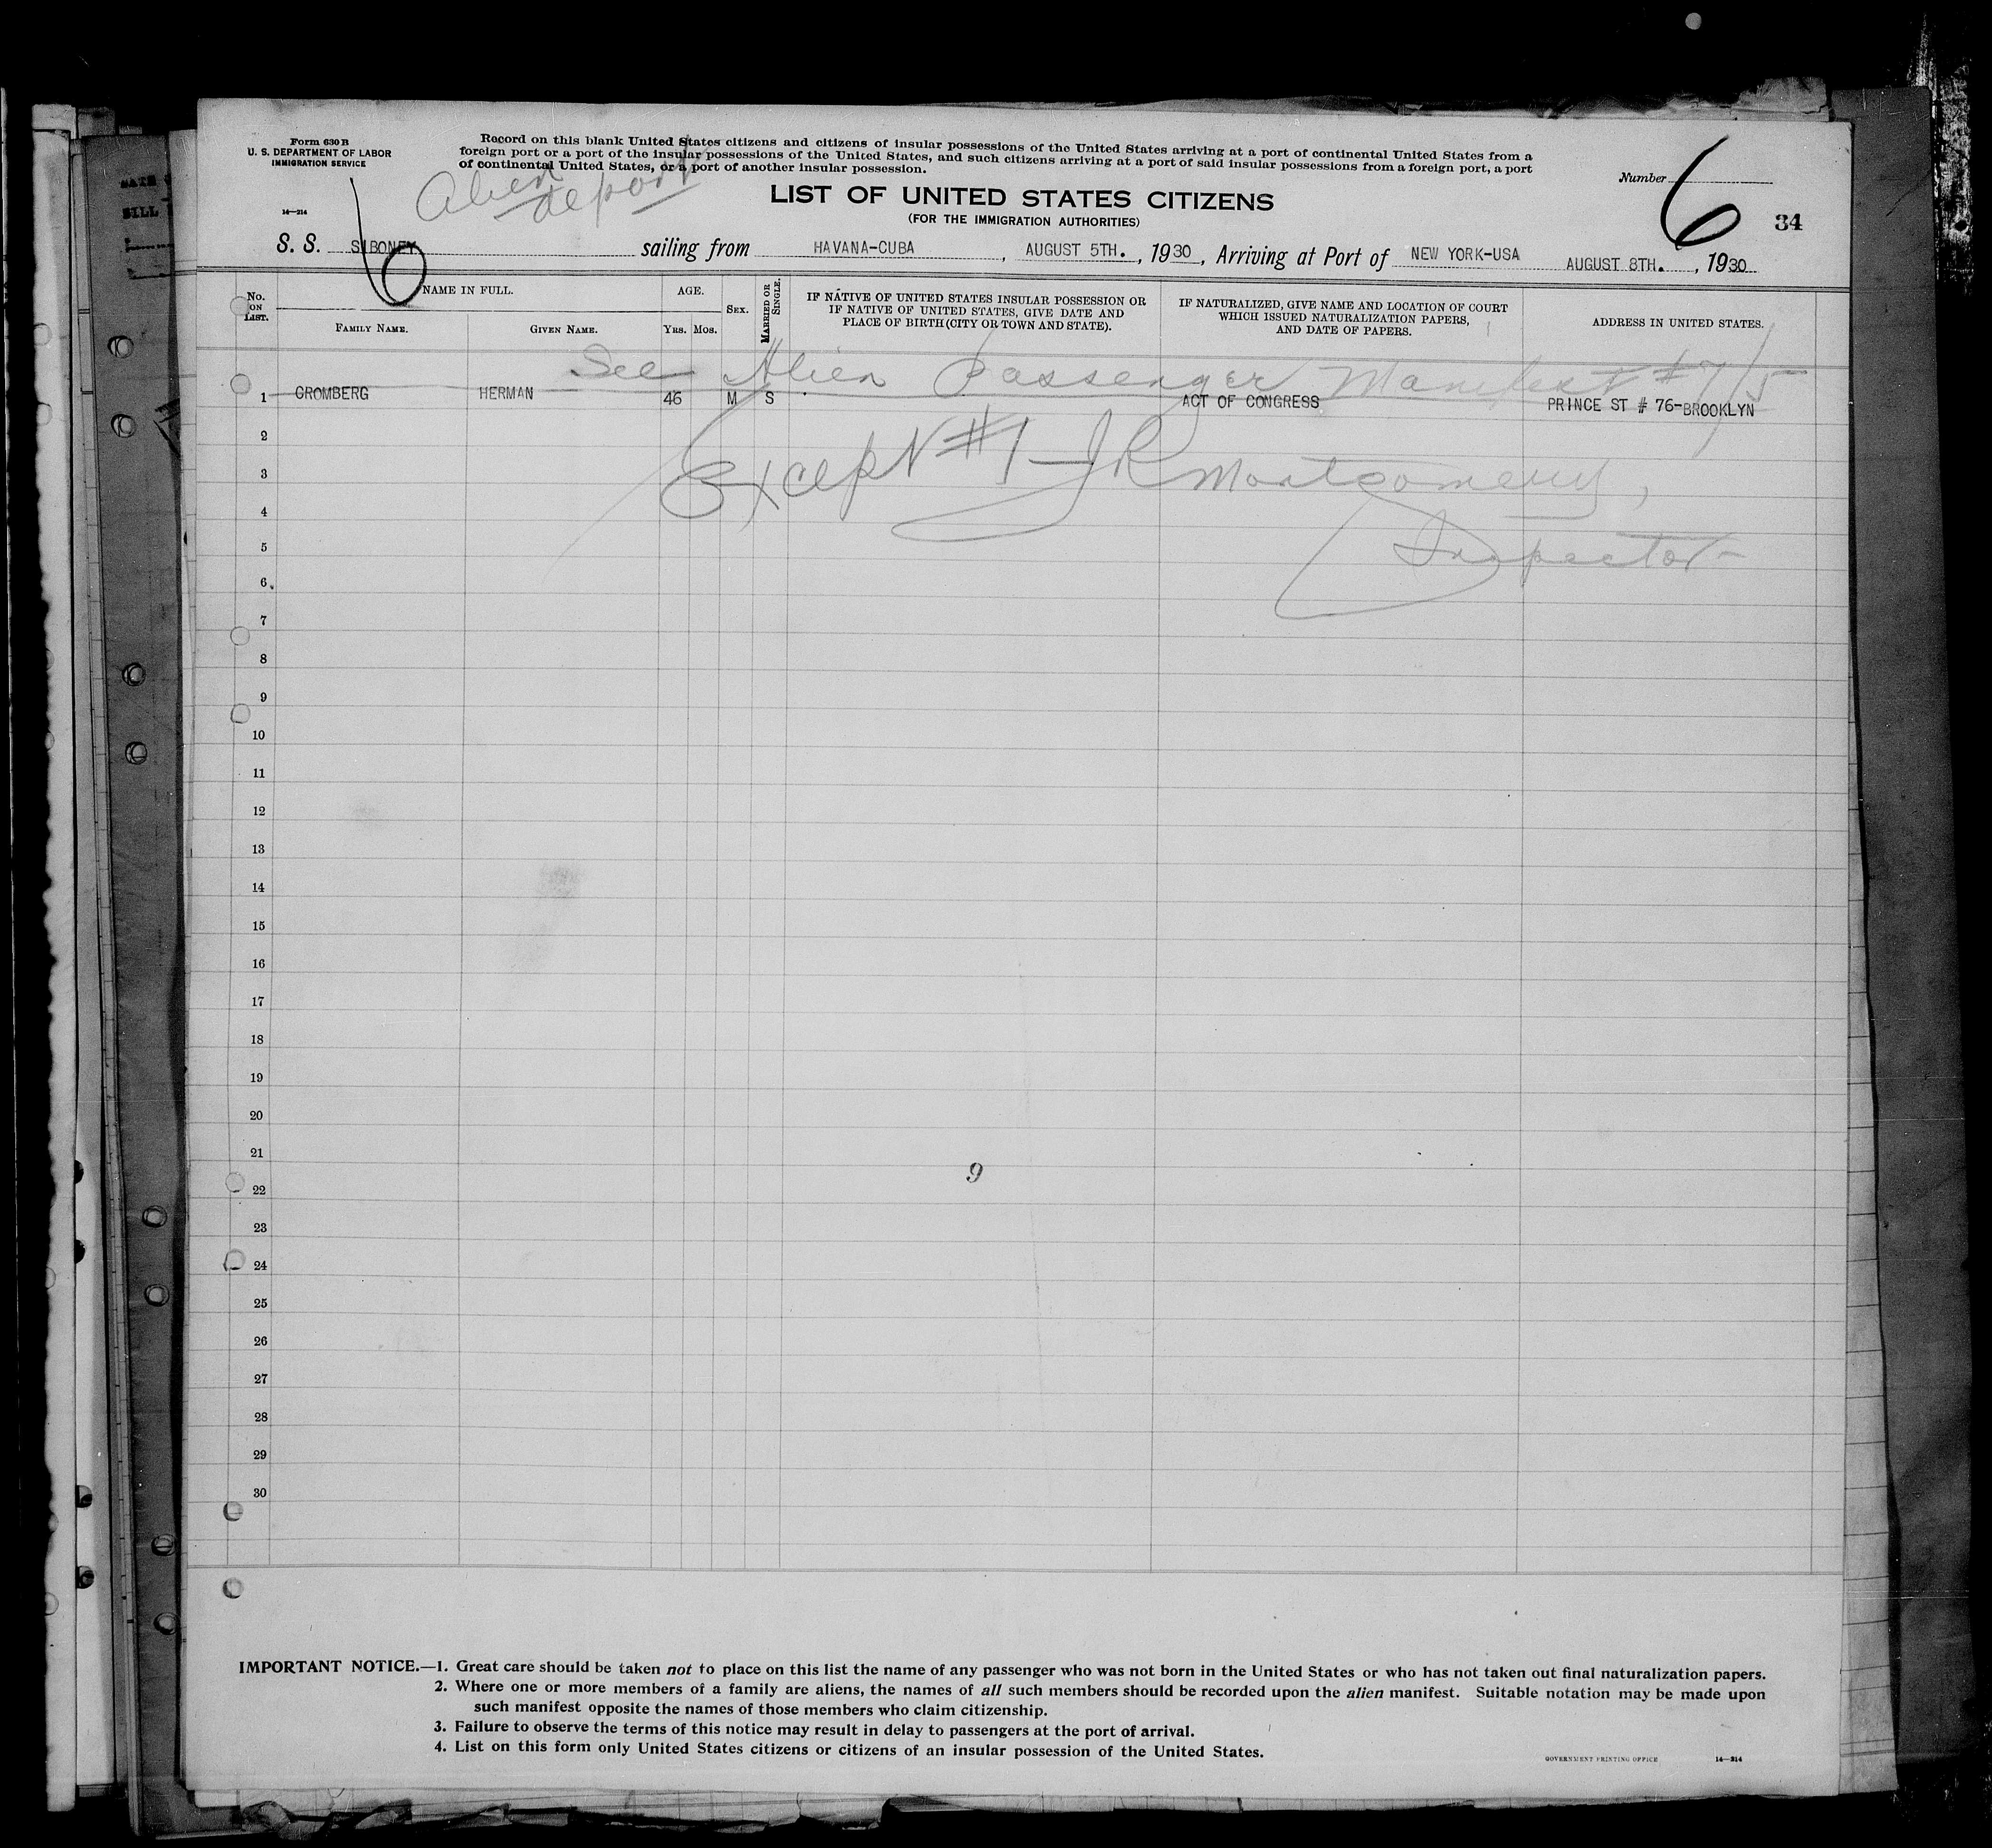 Form 630 B
U. S. DEPARTMENT OF LABOR
IMMIGRATION SERVICE
14—214
Record on this blank United States citizens and citizens of insular possessions of the United States arriving at a port of continental United States from a
foreign port or a port of the insular possessions of the United States, and such citizens arriving at a port of said insular possessions from a foreign port, a port
of continental United States, or a port of another insular possession.
Alien
deport
LIST OF UNITED STATES CITIZENS
(FOR THE IMMIGRATION AUTHORITIES)
Number 6
34
6
S. S. SIBONEY sailing from HAVANA-CUBA, AUGUST 5TH., 1930, Arriving at Port of NEW YORK-USA AUGUST 8TH., 1930
No. ON LIST.
NAME IN FULL.
FAMILY NAME.
GIVEN NAME.
AGE.
YRS. MOS.
SEX.
MARRIED OR SINGLE.
IF NATIVE OF UNITED STATES INSULAR POSSESSION OR
IF NATIVE OF UNITED STATES, GIVE DATE AND
PLACE OF BIRTH (CITY OR TOWN AND STATE).
IF NATURALIZED, GIVE NAME AND LOCATION OF COURT
WHICH ISSUED NATURALIZATION PAPERS,
AND DATE OF PAPERS.
ADDRESS IN UNITED STATES.
See Alien Passenger Manifest #7/5
1 GROMBERG HERMAN 46 M S ACT OF CONGRESS PRINCE ST # 76-BROOKLYN
Except #1 - JR Montgomery,
Inspector
2
3
4
5
6
7
8
9
10
11
12
13
14
15
16
17
18
19
20
21
9
22
23
24
25
26
27
28
29
30
IMPORTANT NOTICE.—1. Great care should be taken not to place on this list the name of any passenger who was not born in the United States or who has not taken out final naturalization papers.
2. Where one or more members of a family are aliens, the names of all such members should be recorded upon the alien manifest. Suitable notation may be made upon
such manifest opposite the names of those members who claim citizenship.
3. Failure to observe the terms of this notice may result in delay to passengers at the port of arrival.
4. List on this form only United States citizens or citizens of an insular possession of the United States.
GOVERNMENT PRINTING OFFICE 14—214